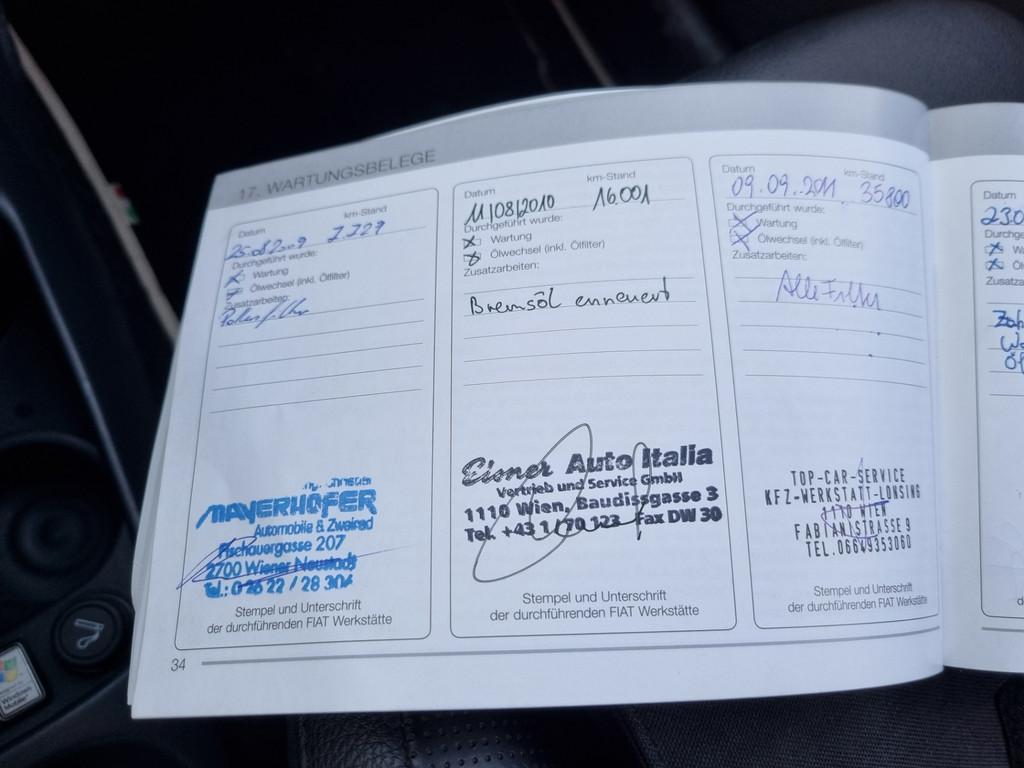 17. WARTUNGSBELEGE
Datum km-Stand
25.08.2009 7.729
Durchgeführt wurde:
Wartung
Ölwechsel (inkl. Ölfilter)
Zusatzarbeiten:
Pollenfilter
MAYERHOFER
Automobile & Zweirad
Fischauergasse 207
2700 Wiener Neustadt
Tel.: 0 26 22 / 28 304
Stempel und Unterschrift
der durchführenden FIAT Werkstätte
Datum km-Stand
11/08/2010 16.001
Durchgeführt wurde:
Wartung
Ölwechsel (inkl. Ölfilter)
Zusatzarbeiten:
Bremsöl erneuert
Eisner Auto Italia
Vertrieb und Service GmbH
1110 Wien, Baudissgasse 3
Tel. +43 1 / 70 123 Fax DW 30
Stempel und Unterschrift
der durchführenden FIAT Werkstätte
Datum km-Stand
09.09.2011. 35800
Durchgeführt wurde:
Wartung
Ölwechsel (inkl. Ölfilter)
Zusatzarbeiten:
Alle Filter
TOP-CAR-SERVICE
KFZ-WERKSTATT-LONSING
1110 WIEN
FABIANISTRASSE 9
TEL.06649353060
Stempel und Unterschrift
der durchführenden FIAT Werkstätte
Datum
230
34
Windows
Mobile